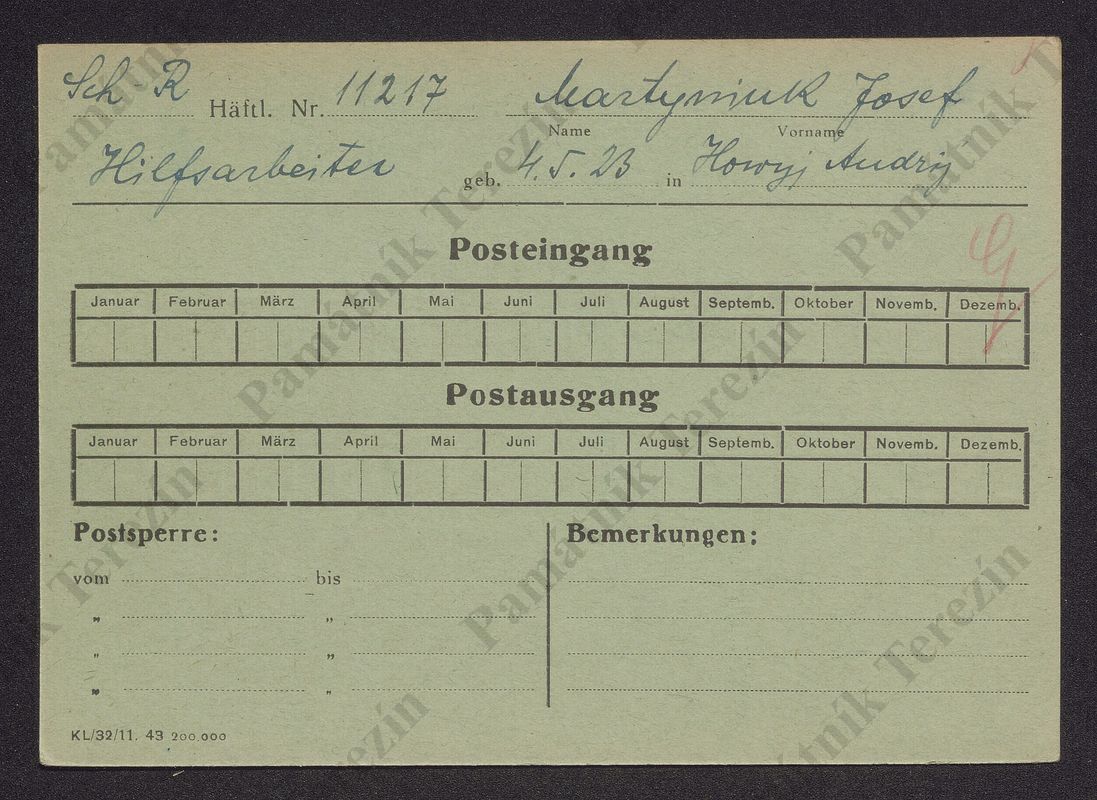 Sch R Häftl. Nr. 11217 Martyniuk Josef
Name Vorname
Hilfsarbeiter geb. 4. 5. 23 in Howyj Andryj
Posteingang
Januar Februar März April Mai Juni Juli August Septemb. Oktober Novemb. Dezemb.
Postausgang
Januar Februar März April Mai Juni Juli August Septemb. Oktober Novemb. Dezemb.
Postsperre: Bemerkungen:
vom bis
„ „
„ „
„ „
KL/32/11. 43 200.000
Památník Terezín